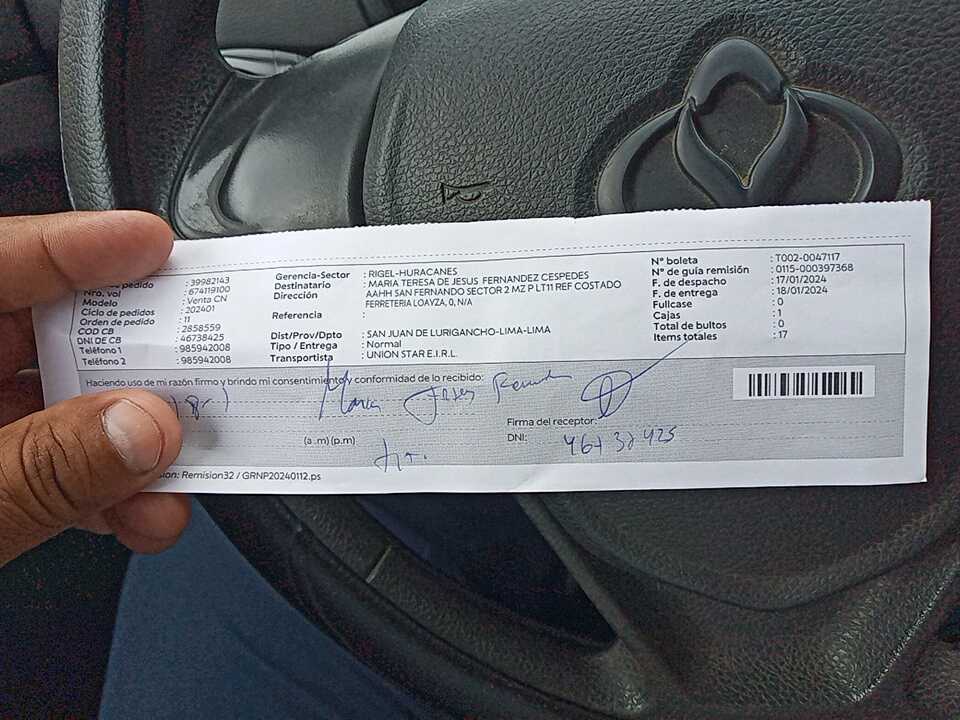 pedido : 39982143
Nro. vol : 674119100
Modelo : Venta CN
Ciclo de pedidos : 202401
Orden de pedido : 11
COD CB : 2858559
DNI DE CB : 46738425
Teléfono 1 : 985942008
Teléfono 2 : 985942008
Gerencia-Sector : RIGEL-HURACANES
Destinatario : MARIA TERESA DE JESUS FERNANDEZ CESPEDES
Dirección AAHH SAN FERNANDO SECTOR 2 MZ P LT11 REF COSTADO
FERRETERIA LOAYZA, 0, N/A
Referencia :
Dist/Prov/Dpto : SAN JUAN DE LURIGANCHO-LIMA-LIMA
Tipo / Entrega : Normal
Transportista : UNION STAR E.I.R.L.
N° boleta : T002-0047117
N° de guía remisión : 0115-000397368
F. de despacho : 17/01/2024
F. de entrega : 18/01/2024
Fullcase : 0
Cajas : 1
Total de bultos : 0
Items totales : 17
Haciendo uso de mi razón firmo y brindo mi consentimiento y conformidad de lo recibido:
Maria
Firma del receptor:
(a .m) (p.m)
DNI:
Remision32 / GRNP20240112.ps